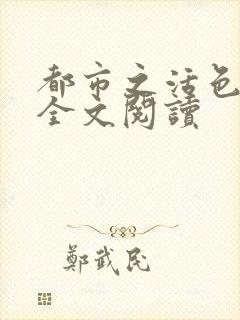 都市之活色
全文閱讀
鄭武民